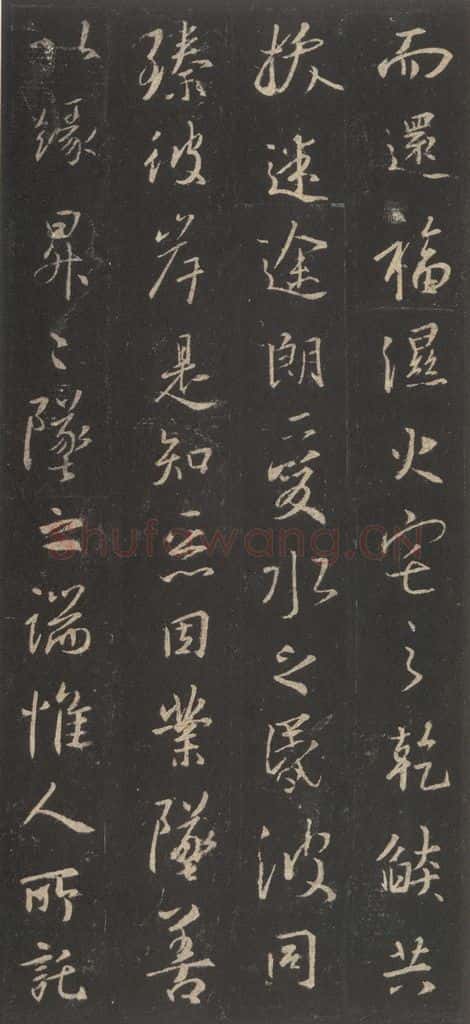 而還福濕火宅之乾燄共
拔迷途朗愛水之昬波同
臻彼岸是知惡因業墜善
以緣昇々墜之端惟人所託
Shufawang.CN